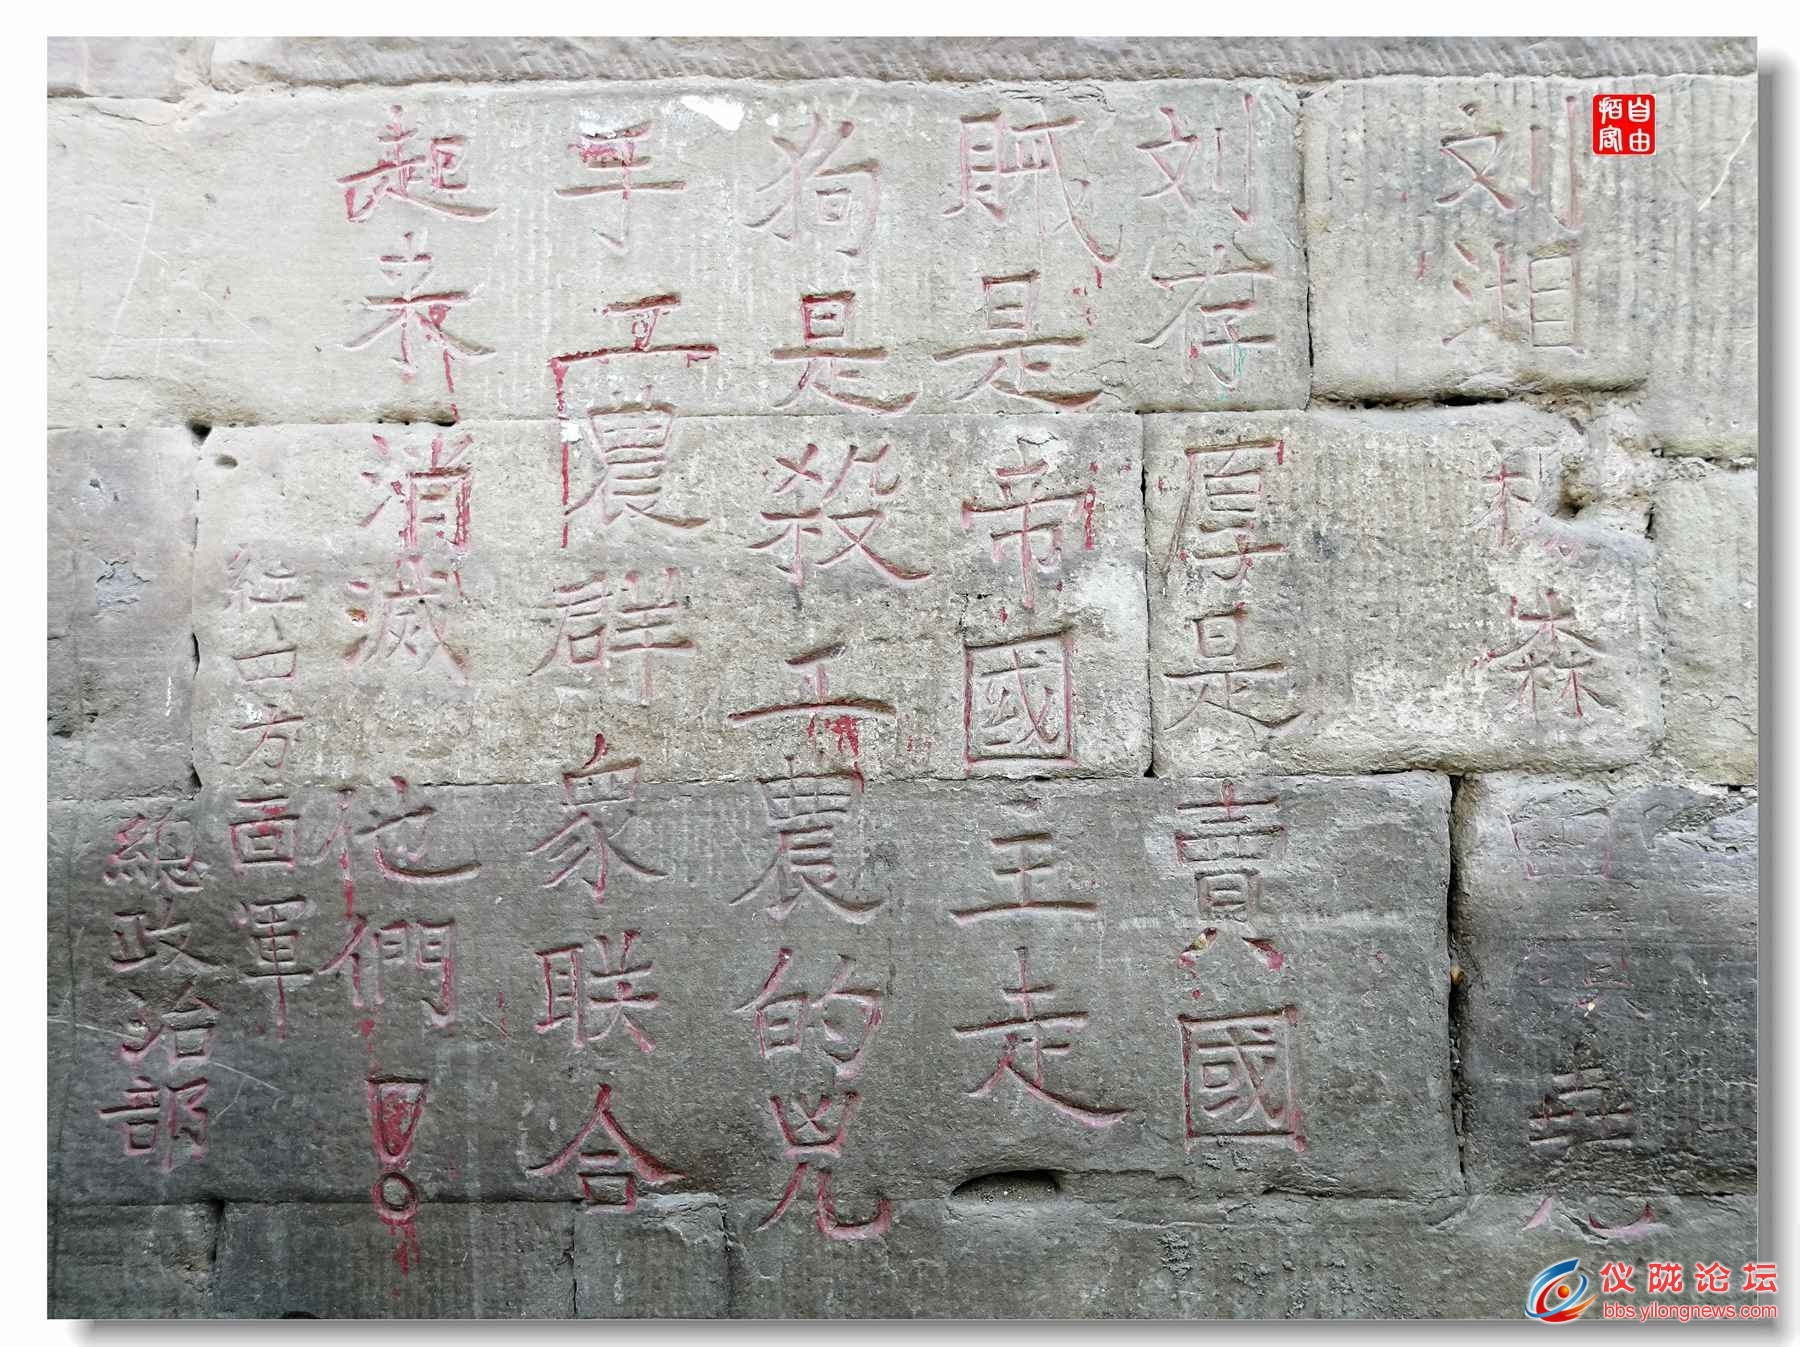 刘湘楊森田頌堯
刘存厚是賣國
賊是帝國主走
狗是殺工農的兇
手工農群眾联合
起来消滅他們！
紅四方面軍
總政治部
自由
拓客
仪陇论坛
bbs.yilongnews.com